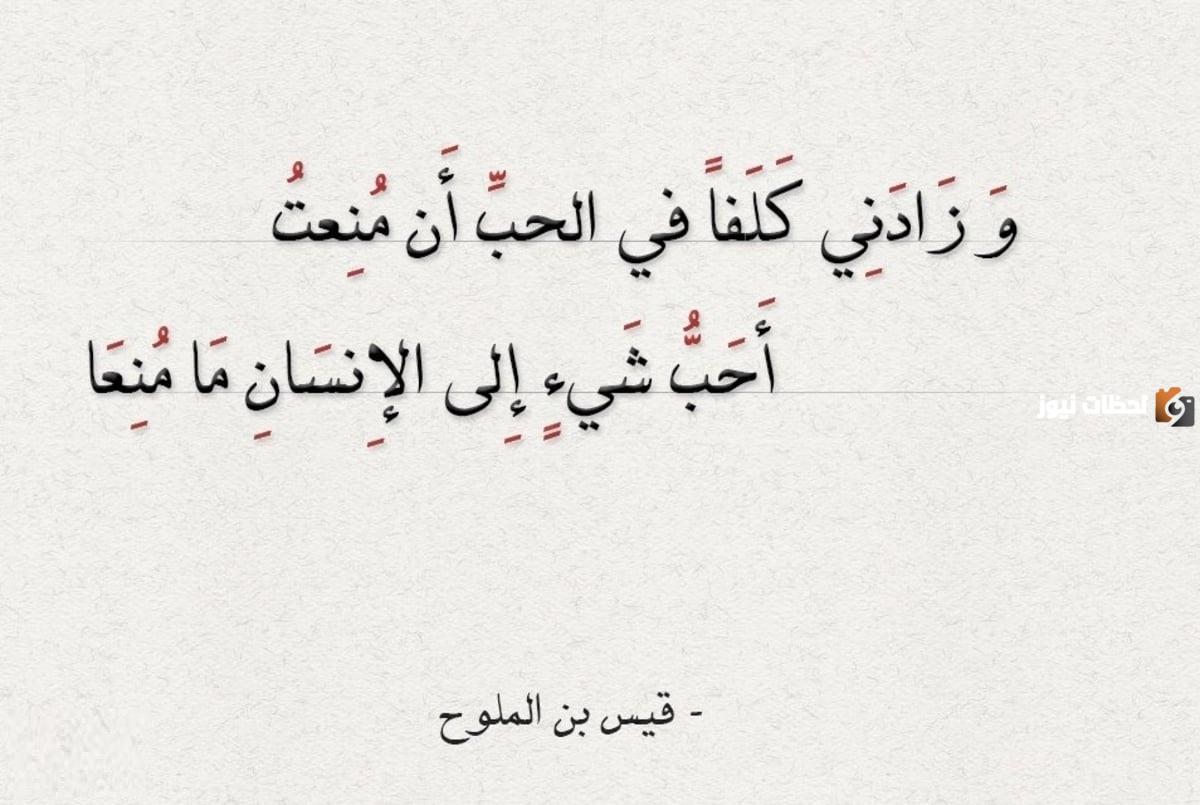 وَ زَادَنِي كَلَفاً في الحبِّ أَن مُنِعتُ
أَحَبُّ شَيءٍ إِلى الإِنسَانِ مَا مُنِعَا
لحظات نيوز
- قيس بن الملوح